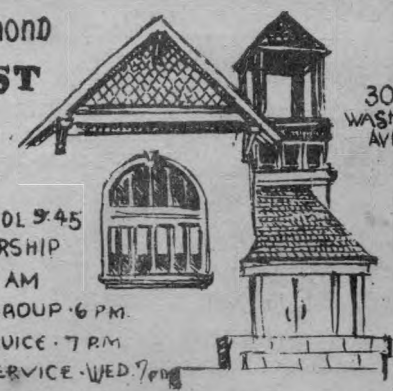 MOND
ST
30
WASH
AVE
OL 9:45
RSHIP
AM
ROUP · 6 P.M.
VICE · 7 P.M
ERVICE · WED. 7 PM